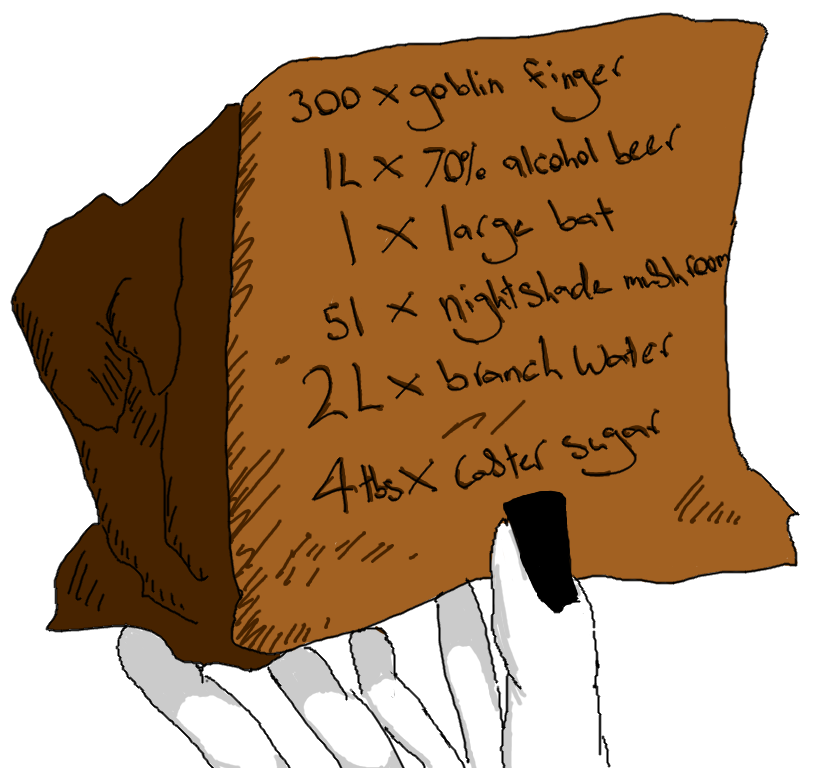 300 x goblin finger
1L x 70% alcohol beer
1 x large bat
51 x nightshade mushroom
2L x branch water
4tbs x caster sugar